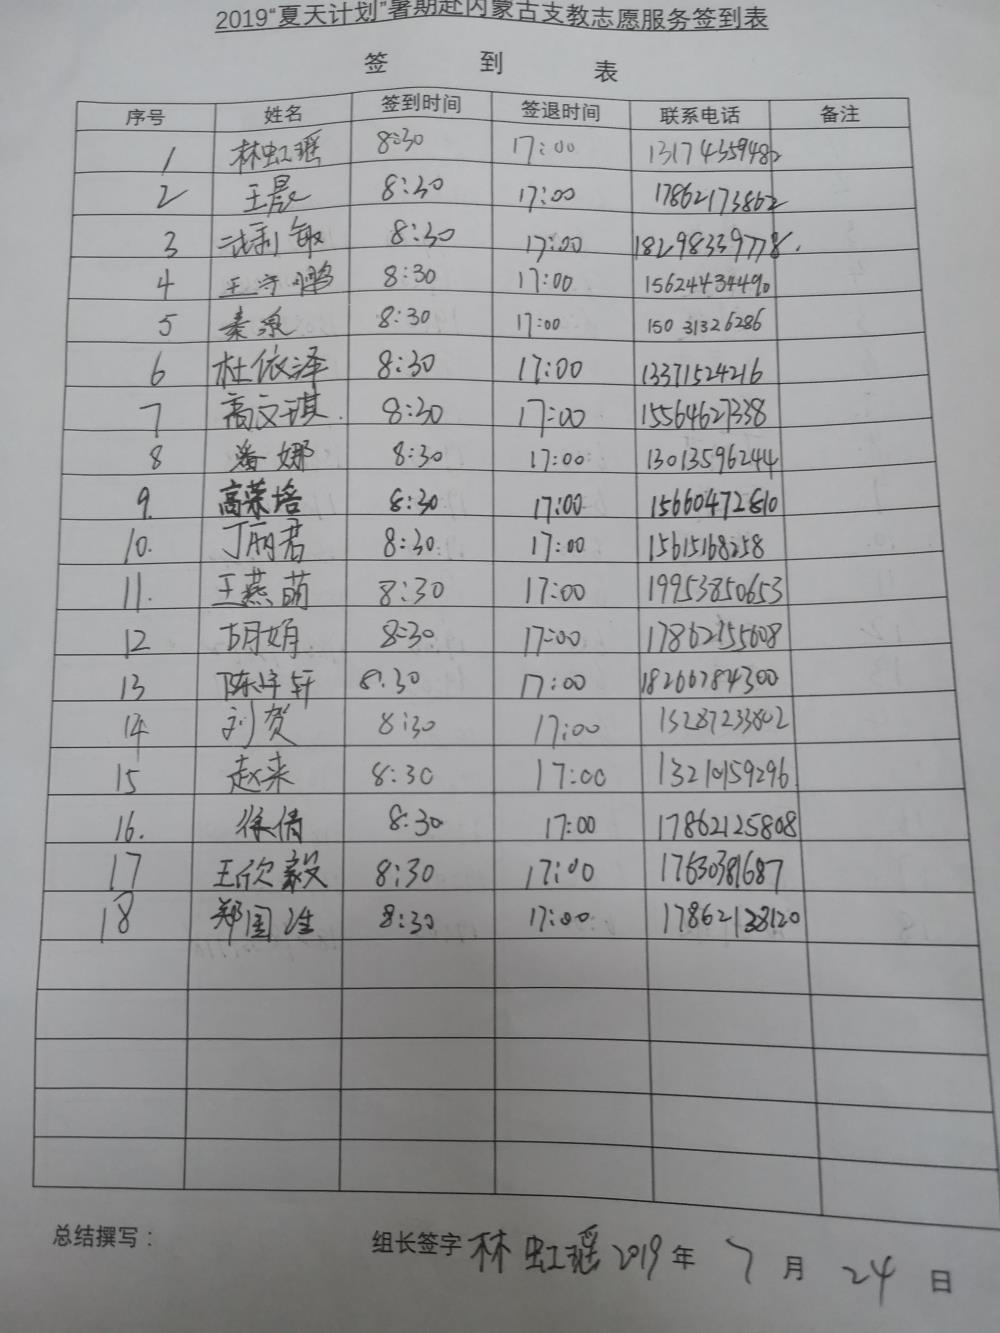 2019“夏天计划”暑期赴内蒙古支教志愿服务签到表
签 到 表
序号 姓名 签到时间 签退时间 联系电话 备注
1 林虹瑶 8:30 17:00 13174359482
2 王晨 8:30 17:00 17862173862
3 8:30 17:00 18298339778.
4 王守鹏 8:30 17:00 15624434490
5 秦泉 8:30 17:00 15031326286
6 杜依泽 8:30 17:00 13371524216
7 高文琪. 8:30 17:00 15564627338
8 潘娜 8:30 17:00 13013596244
9. 高荣培 8:30 17:00 15660472810
10. 丁丽君 8:30 17:00 15615168258
11. 王燕萌 8:30 17:00 19953850653
12 胡娟 8:30 17:00 17862155608
13 陈宇轩 8.30 17:00 18266784300
14 刘贺 8:30 17:00 15287233802
15 赵来 8:30 17:00 13210159296
16. 徐倩 8:30 17:00 17862125808
17 王欣毅 8:30 17:00 17630381687
18 郑国 8:30 17:00 17862138120
总结撰写： 组长签字 林虹瑶 2019年 7月 24日